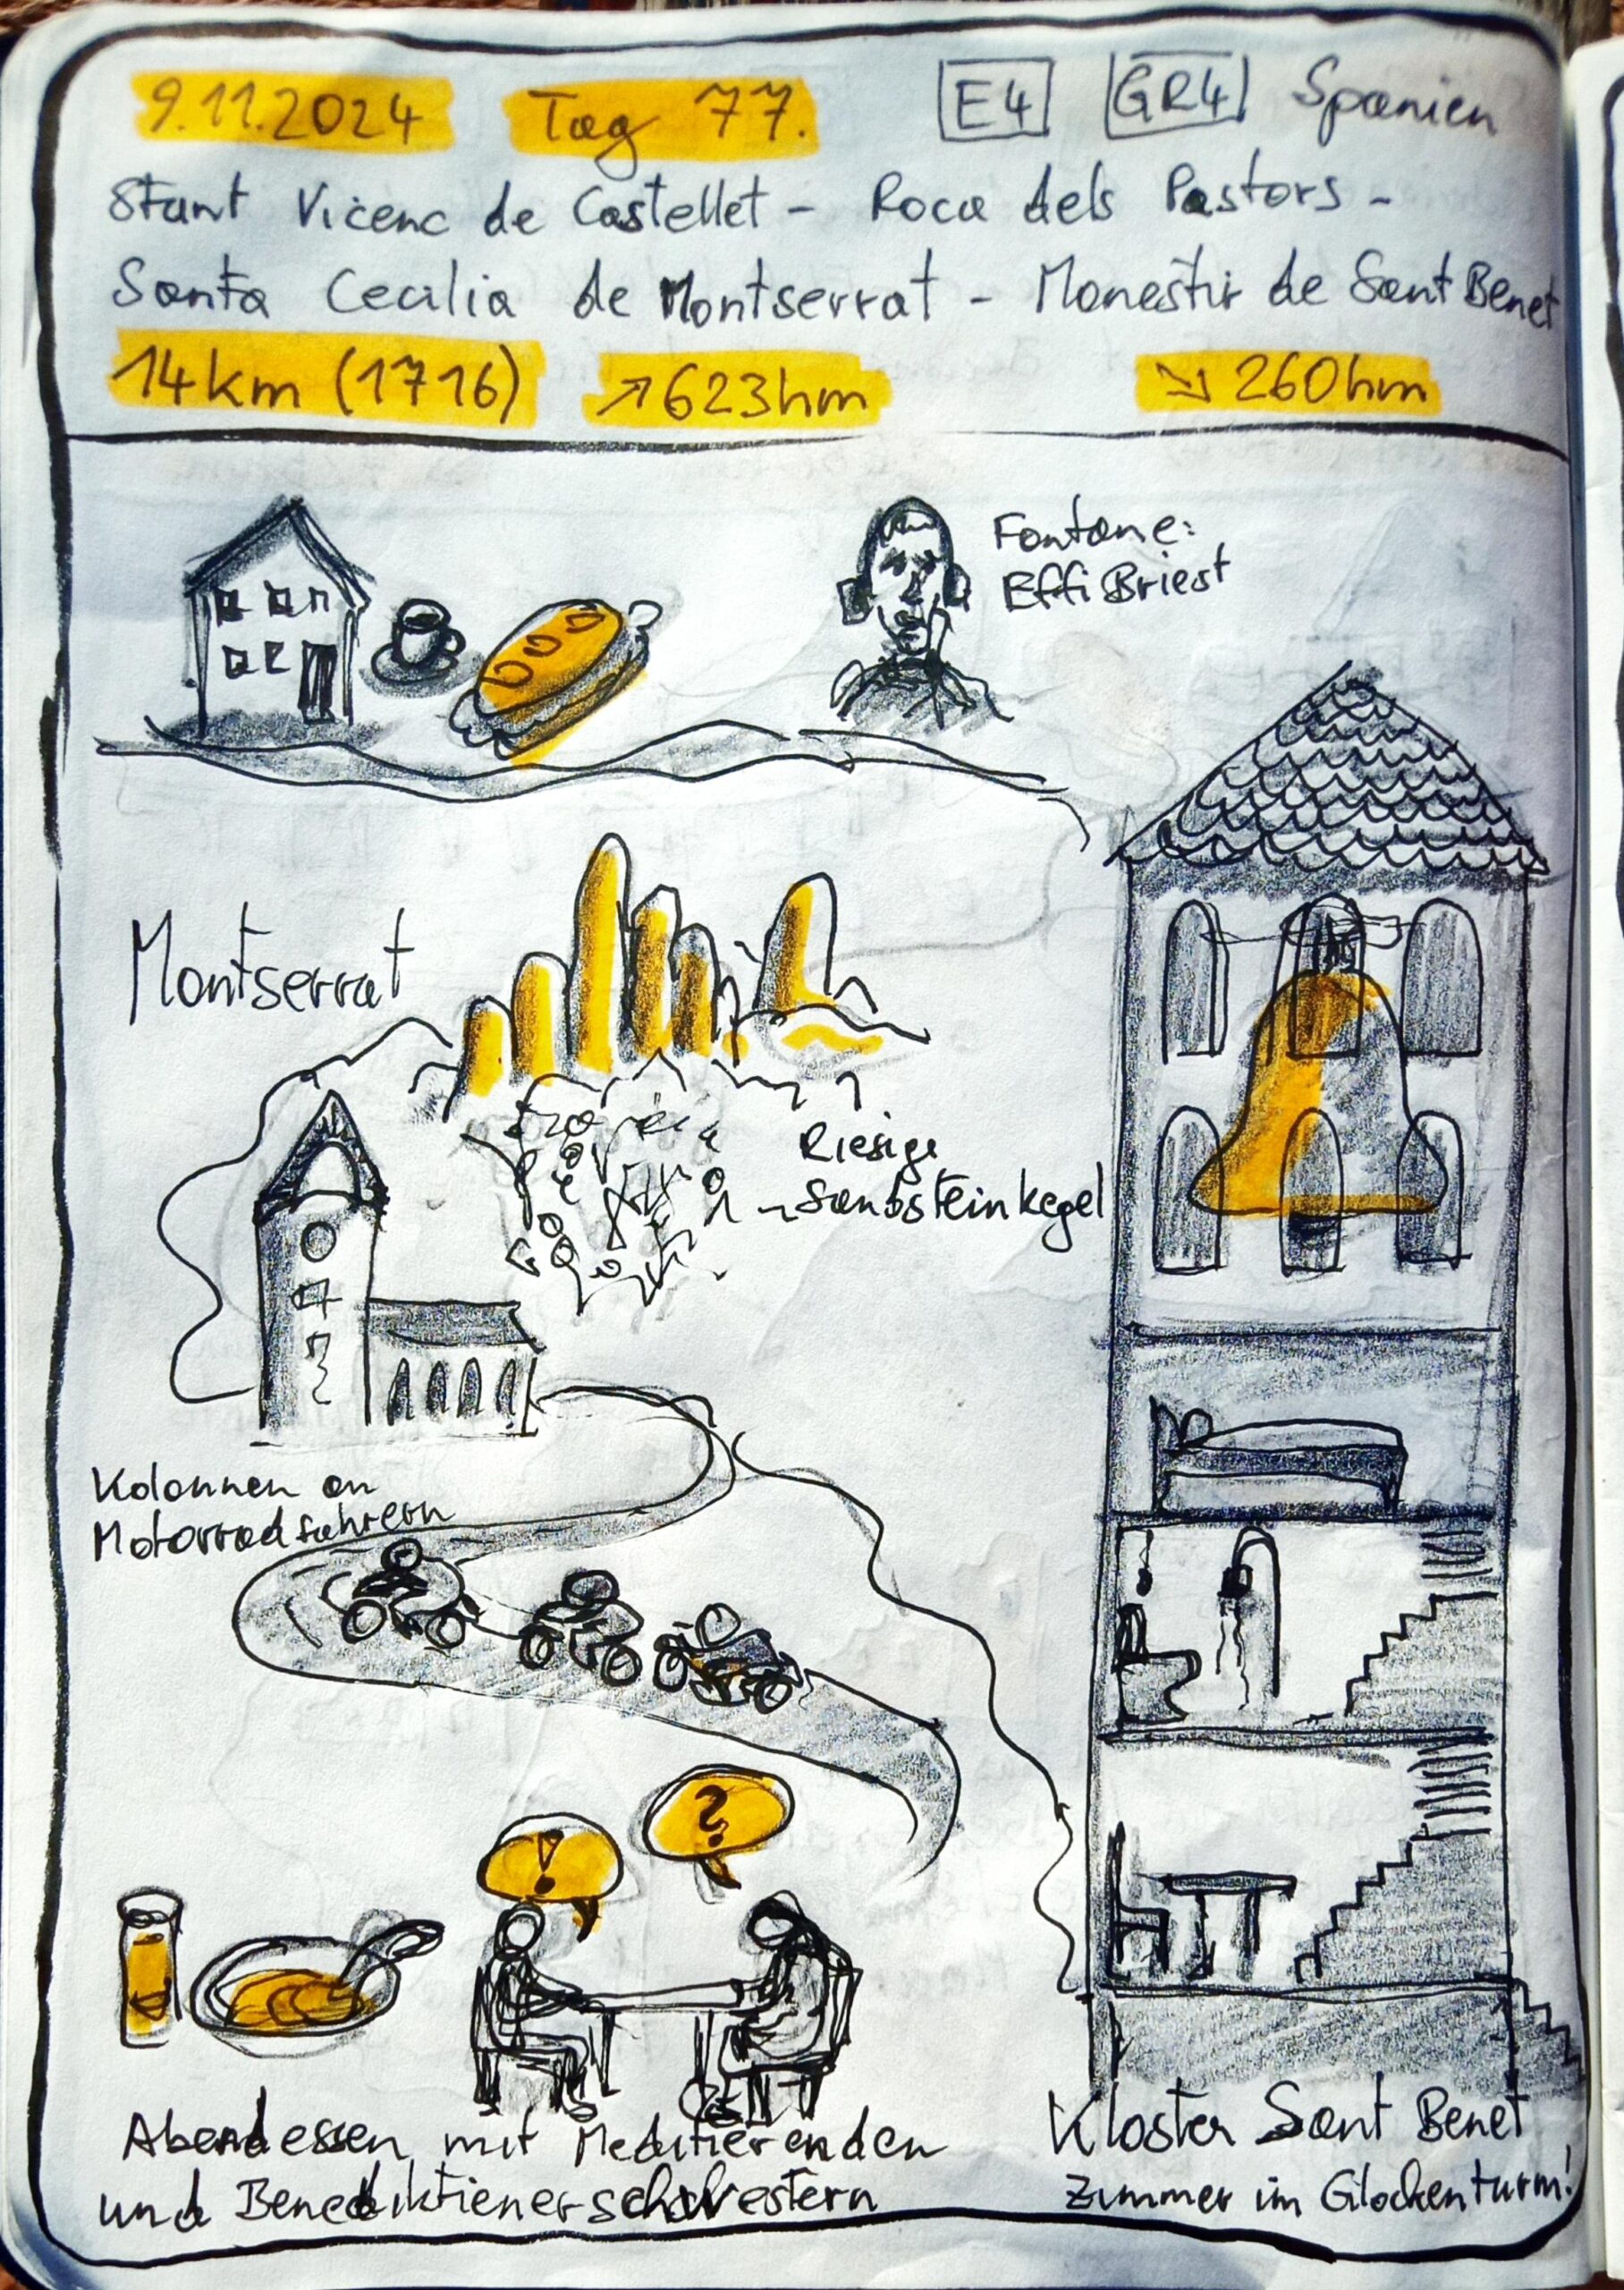 9.11.2024 Tag 77. E4 GR4 Spanien
Stant Vicenc de Castellet - Roca dels Pastors -
Santa Cecilia de Montserrat - Monestir de Sant Benet
14km (1716) ↗623hm ↘260hm
Fontane:
Effi Briest
Montserrat
Riesige
Sandsteinkegel
Kolonnen an
Motorradfahrern
!
?
Abendessen mit Meditierenden
und Benediktienerschwestern
Kloster Sant Benet
Zimmer im Glockenturm!